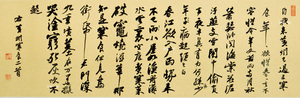 自我来黄州已过三寒
食年年欲惜春春去不
容惜今年又苦雨两月秋
萧瑟卧闻海棠花泥
污燕支雪暗中偷负
去夜半真有力何殊病少
年病起头已白
春江欲入户雨势来
不已小屋如渔舟濛濛
水云里空庖煮寒菜
破灶烧湿苇那
知是寒食但见乌
衔纸君门深
九重坟墓在万里也拟
哭涂穷死灰吹不
起
右黄州寒食二首